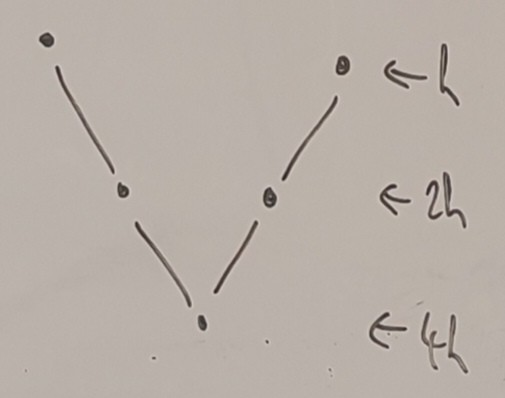 ← h
← 2h
← 4h